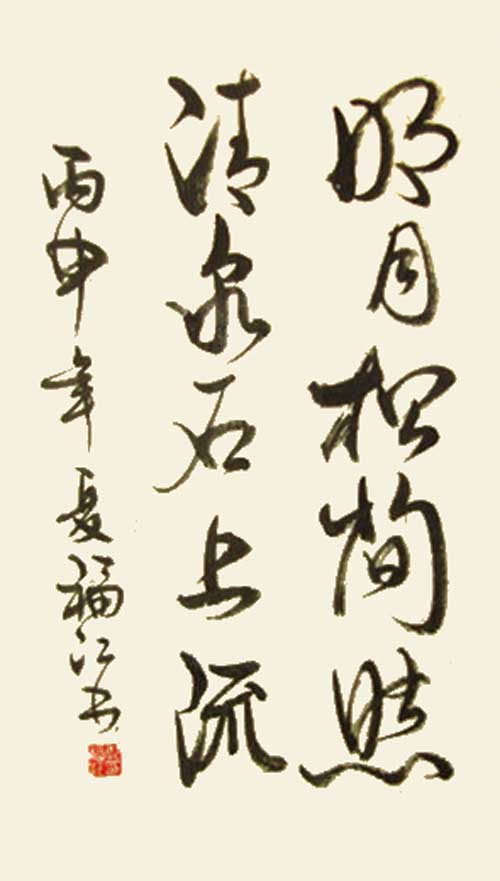 明月松间照
清泉石上流
丙申年夏福江书